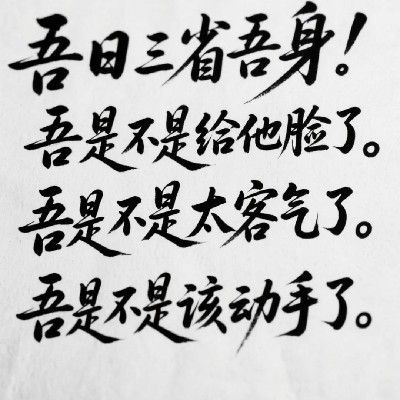 吾日三省吾身！
吾是不是给他脸了。
吾是不是太客气了。
吾是不是该动手了。